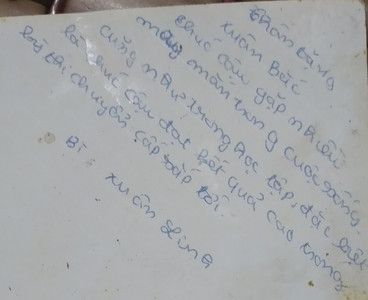 Thân tặng
Xuân Bắc
Chúc cậu gặp nhiều
may mắn trong cuộc sống
cũng như trong học tập, đặc biệt
là chúc cậu đạt kết quả cao trong
kỳ thi chuyển cấp sắp tới
Xuân